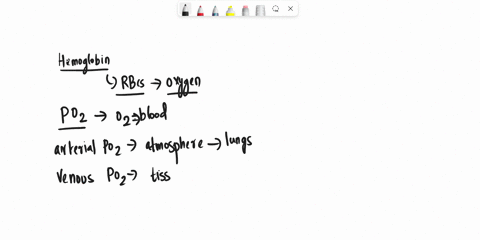 Hemoglobin
↳ RBCs → oxygen
PO₂ → O₂ → blood
arterial PO₂ → atmosphere → lungs
Venous PO₂ → tiss